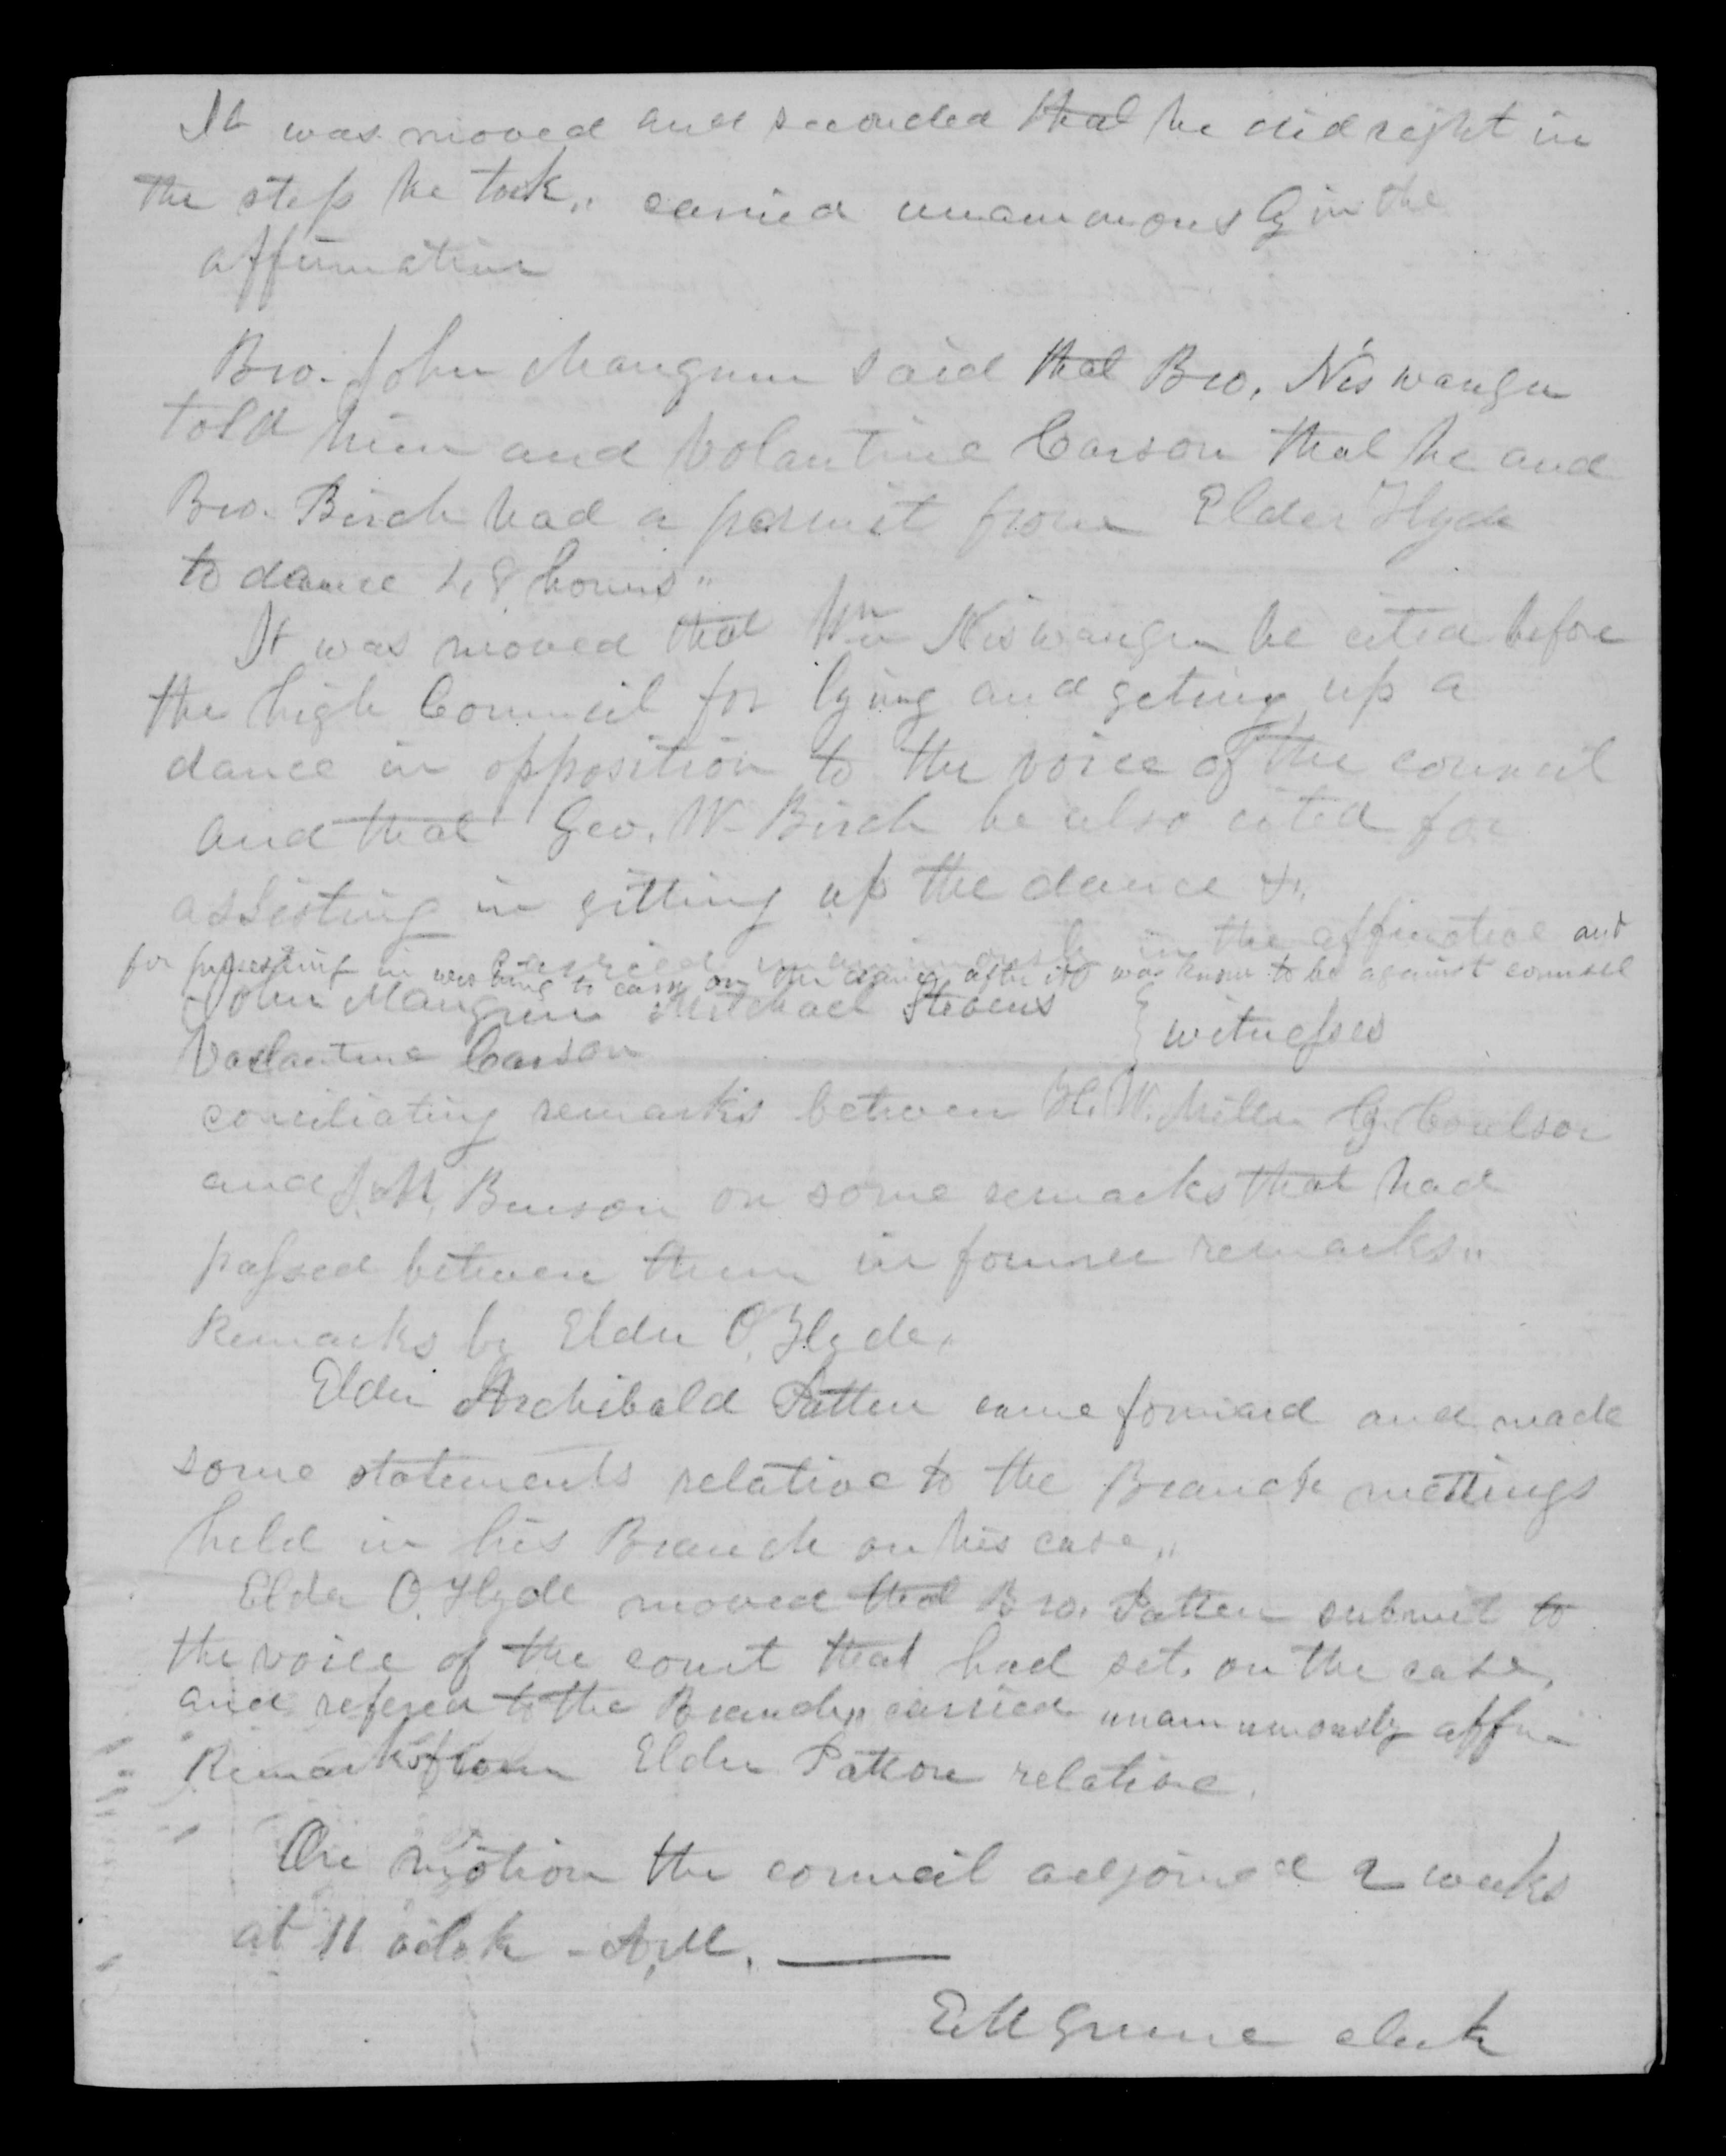 It was moved and seconded that he did right in
the step he took,, carried unanamously in the
affirmative
Bro. John Mangum said that Bro. Niswanger
told him and Volantine Carson that he and
Bro. Birch had a permit from Elder Hyde
to dance 48 hours"
It was moved that Wm Niswanger be cited before
the high Council for lying and geting up a
dance in opposition to the voice of the council
and that Geo. W. Birch be also cited for
assisting in gitting up the dance &c.
carried unanimously in the affirmative and
for persesting in to carry on the dance after it was known to be against counsel
John Mangum Mitchael Stevens
Vaolantine Carson } witnesses
conciliating remarks between H. W. Miller G. Coulson
and J. M. Benson on some remarks that had
passed between them in former remarks,,
Remarks by Elder O. Hyde,
Elder Archibald Patten came forward and made
some statements relative to the Branch mettings
held in his Branch on his case,,
Elder O. Hyde moved that Bro. Patten submit to
the voice of the court that had set. on the case,
and refered to the Branch,, carried unamumously affir
Remarks from Elder Patton relative.
On motion the council adjorned 2 weeks
at 11 oclok - A,M.
E M Greene clerk